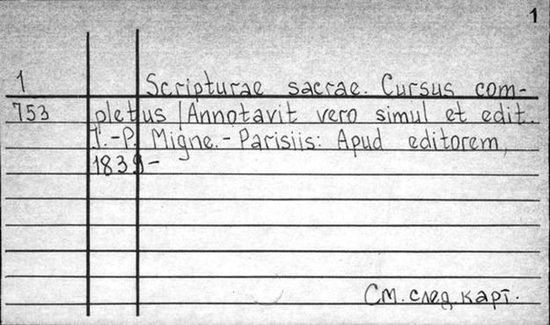 1
1 Scripturae sacrae. Cursus com-
753 pletus / Annotavit vero simul et edit.
J.-P. Migne. - Parisiis: Apud editorem,
1839-
См. след. карт.